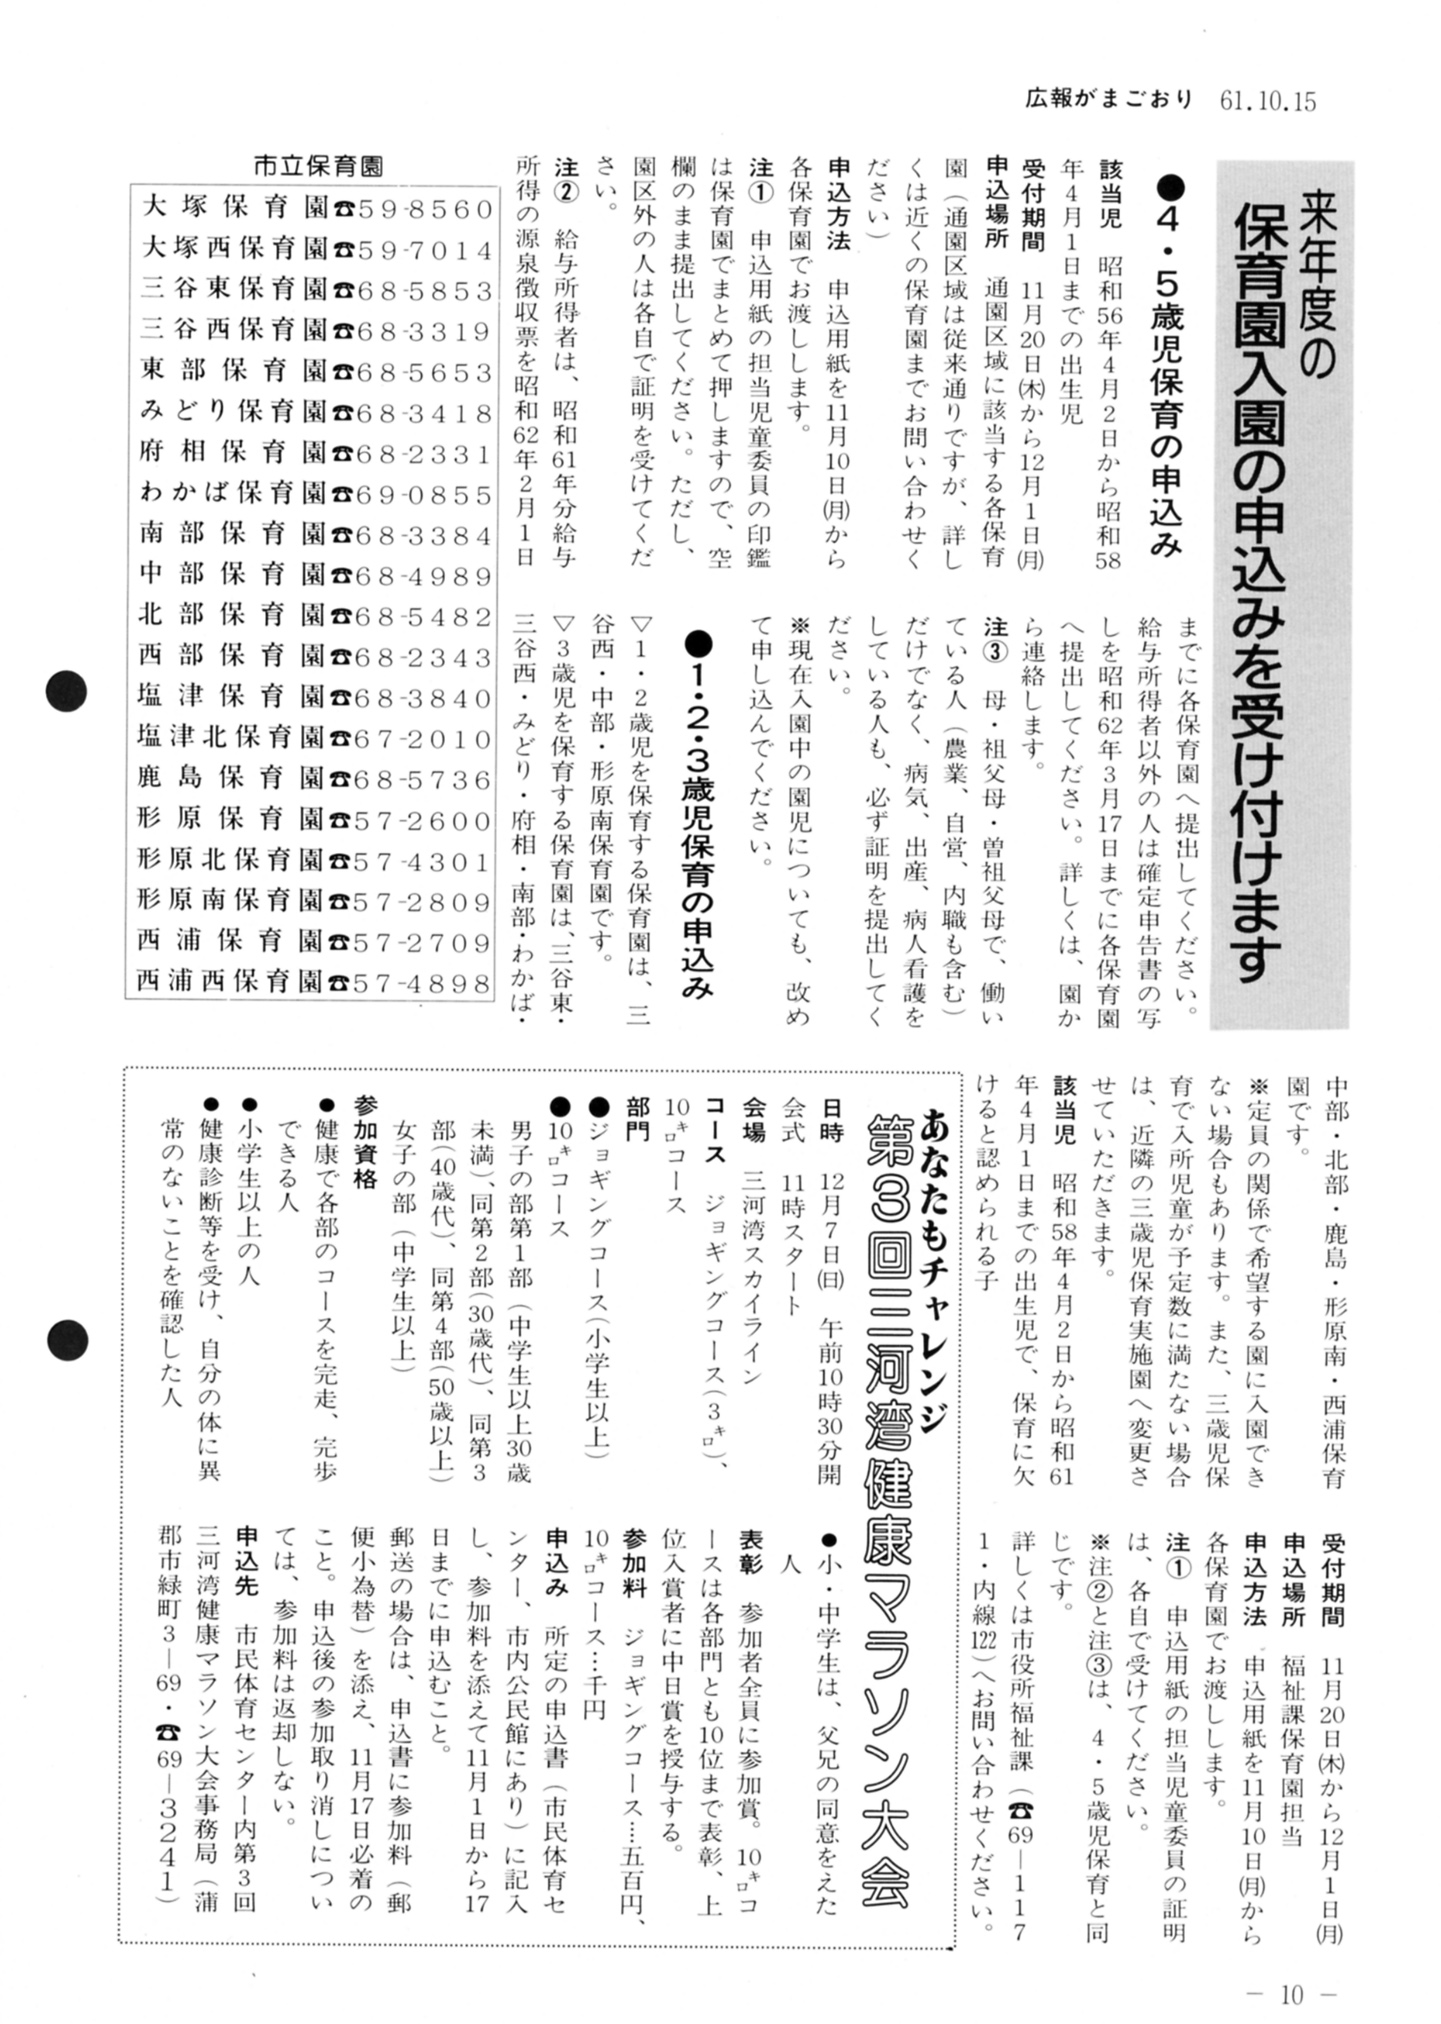 広報がまごおり 61.10.15
来年度の
保育園入園の申込みを受け付けます
●4・5歳児保育の申込み
該当児　昭和56年4月2日から昭和58
年4月1日までの出生児
受付期間　11月20日㈭から12月1日㈪
申込場所　通園区域に該当する各保育
園（通園区域は従来通りですが、詳し
くは近くの保育園までお問い合わせく
ださい）
申込方法　申込用紙を11月10日㈪から
各保育園でお渡しします。
注①　申込用紙の担当児童委員の印鑑
は保育園でまとめて押しますので、空
欄のまま提出してください。ただし、
園区外の人は各自で証明を受けてくだ
さい。
注②　給与所得者は、昭和61年分給与
所得の源泉徴収票を昭和62年2月1日
までに各保育園へ提出してください。
給与所得者以外の人は確定申告書の写
しを昭和62年3月17日までに各保育園
へ提出してください。詳しくは、園か
ら連絡します。
注③　母・祖父母・曽祖父母で、働い
ている人（農業、自営、内職も含む）
だけでなく、病気、出産、病人看護を
している人も、必ず証明を提出してく
ださい。
※現在入園中の園児についても、改め
て申し込んでください。
●1・2・3歳児保育の申込み
▽1・2歳児を保育する保育園は、三
谷西・中部・形原南保育園です。
▽3歳児を保育する保育園は、三谷東・
三谷西・みどり・府相・南部・わかば・
市立保育園
大塚保育園☎59-8560
大塚西保育園☎59-7014
三谷東保育園☎68-5853
三谷西保育園☎68-3319
東部保育園☎68-5653
みどり保育園☎68-3418
府相保育園☎68-2331
わかば保育園☎69-0855
南部保育園☎68-3384
中部保育園☎68-4989
北部保育園☎68-5482
西部保育園☎68-2343
塩津保育園☎68-3840
塩津北保育園☎67-2010
鹿島保育園☎68-5736
形原保育園☎57-2600
形原北保育園☎57-4301
形原南保育園☎57-2809
西浦保育園☎57-2709
西浦西保育園☎57-4898
中部・北部・鹿島・形原南・西浦保育
園です。
※定員の関係で希望する園に入園でき
ない場合もあります。また、三歳児保
育で入所児童が予定数に満たない場合
は、近隣の三歳児保育実施園へ変更さ
せていただきます。
該当児　昭和58年4月2日から昭和61
年4月1日までの出生児で、保育に欠
けると認められる子
受付期間　11月20日㈭から12月1日㈪
申込場所　福祉課保育園担当
申込方法　申込用紙を11月10日㈪から
各保育園でお渡しします。
注①　申込用紙の担当児童委員の証明
は、各自で受けてください。
※注②と注③は、4・5歳児保育と同
じです。
詳しくは市役所福祉課（☎69―117
1・内線122）へお問い合わせください。
あなたもチャレンジ
第3回三河湾健康マラソン大会
日時　12月7日㈰　午前10時30分開
会式　11時スタート
会場　三河湾スカイライン
コース　ジョギングコース（3㌔）、
10㌔コース
部門
●ジョギングコース（小学生以上）
●10㌔コース
男子の部第1部（中学生以上30歳
未満）、同第2部（30歳代）、同第3
部（40歳代）、同第4部（50歳以上）
女子の部（中学生以上）
参加資格
●健康で各部のコースを完走、完歩
できる人
●小学生以上の人
●健康診断等を受け、自分の体に異
常のないことを確認した人
●小・中学生は、父兄の同意をえた
人
表彰　参加者全員に参加賞。10㌔コ
ースは各部門とも10位まで表彰、上
位入賞者に中日賞を授与する。
参加料　ジョギングコース…五百円、
10㌔コース…千円
申込み　所定の申込書（市民体育セ
ンター、市内公民館にあり）に記入
し、参加料を添えて11月1日から17
日までに申込むこと。
郵送の場合は、申込書に参加料（郵
便小為替）を添え、11月17日必着の
こと。申込後の参加取り消しについ
ては、参加料は返却しない。
申込先　市民体育センター内第3回
三河湾健康マラソン大会事務局（蒲
郡市緑町3―69・☎69―3241）
― 10 ―